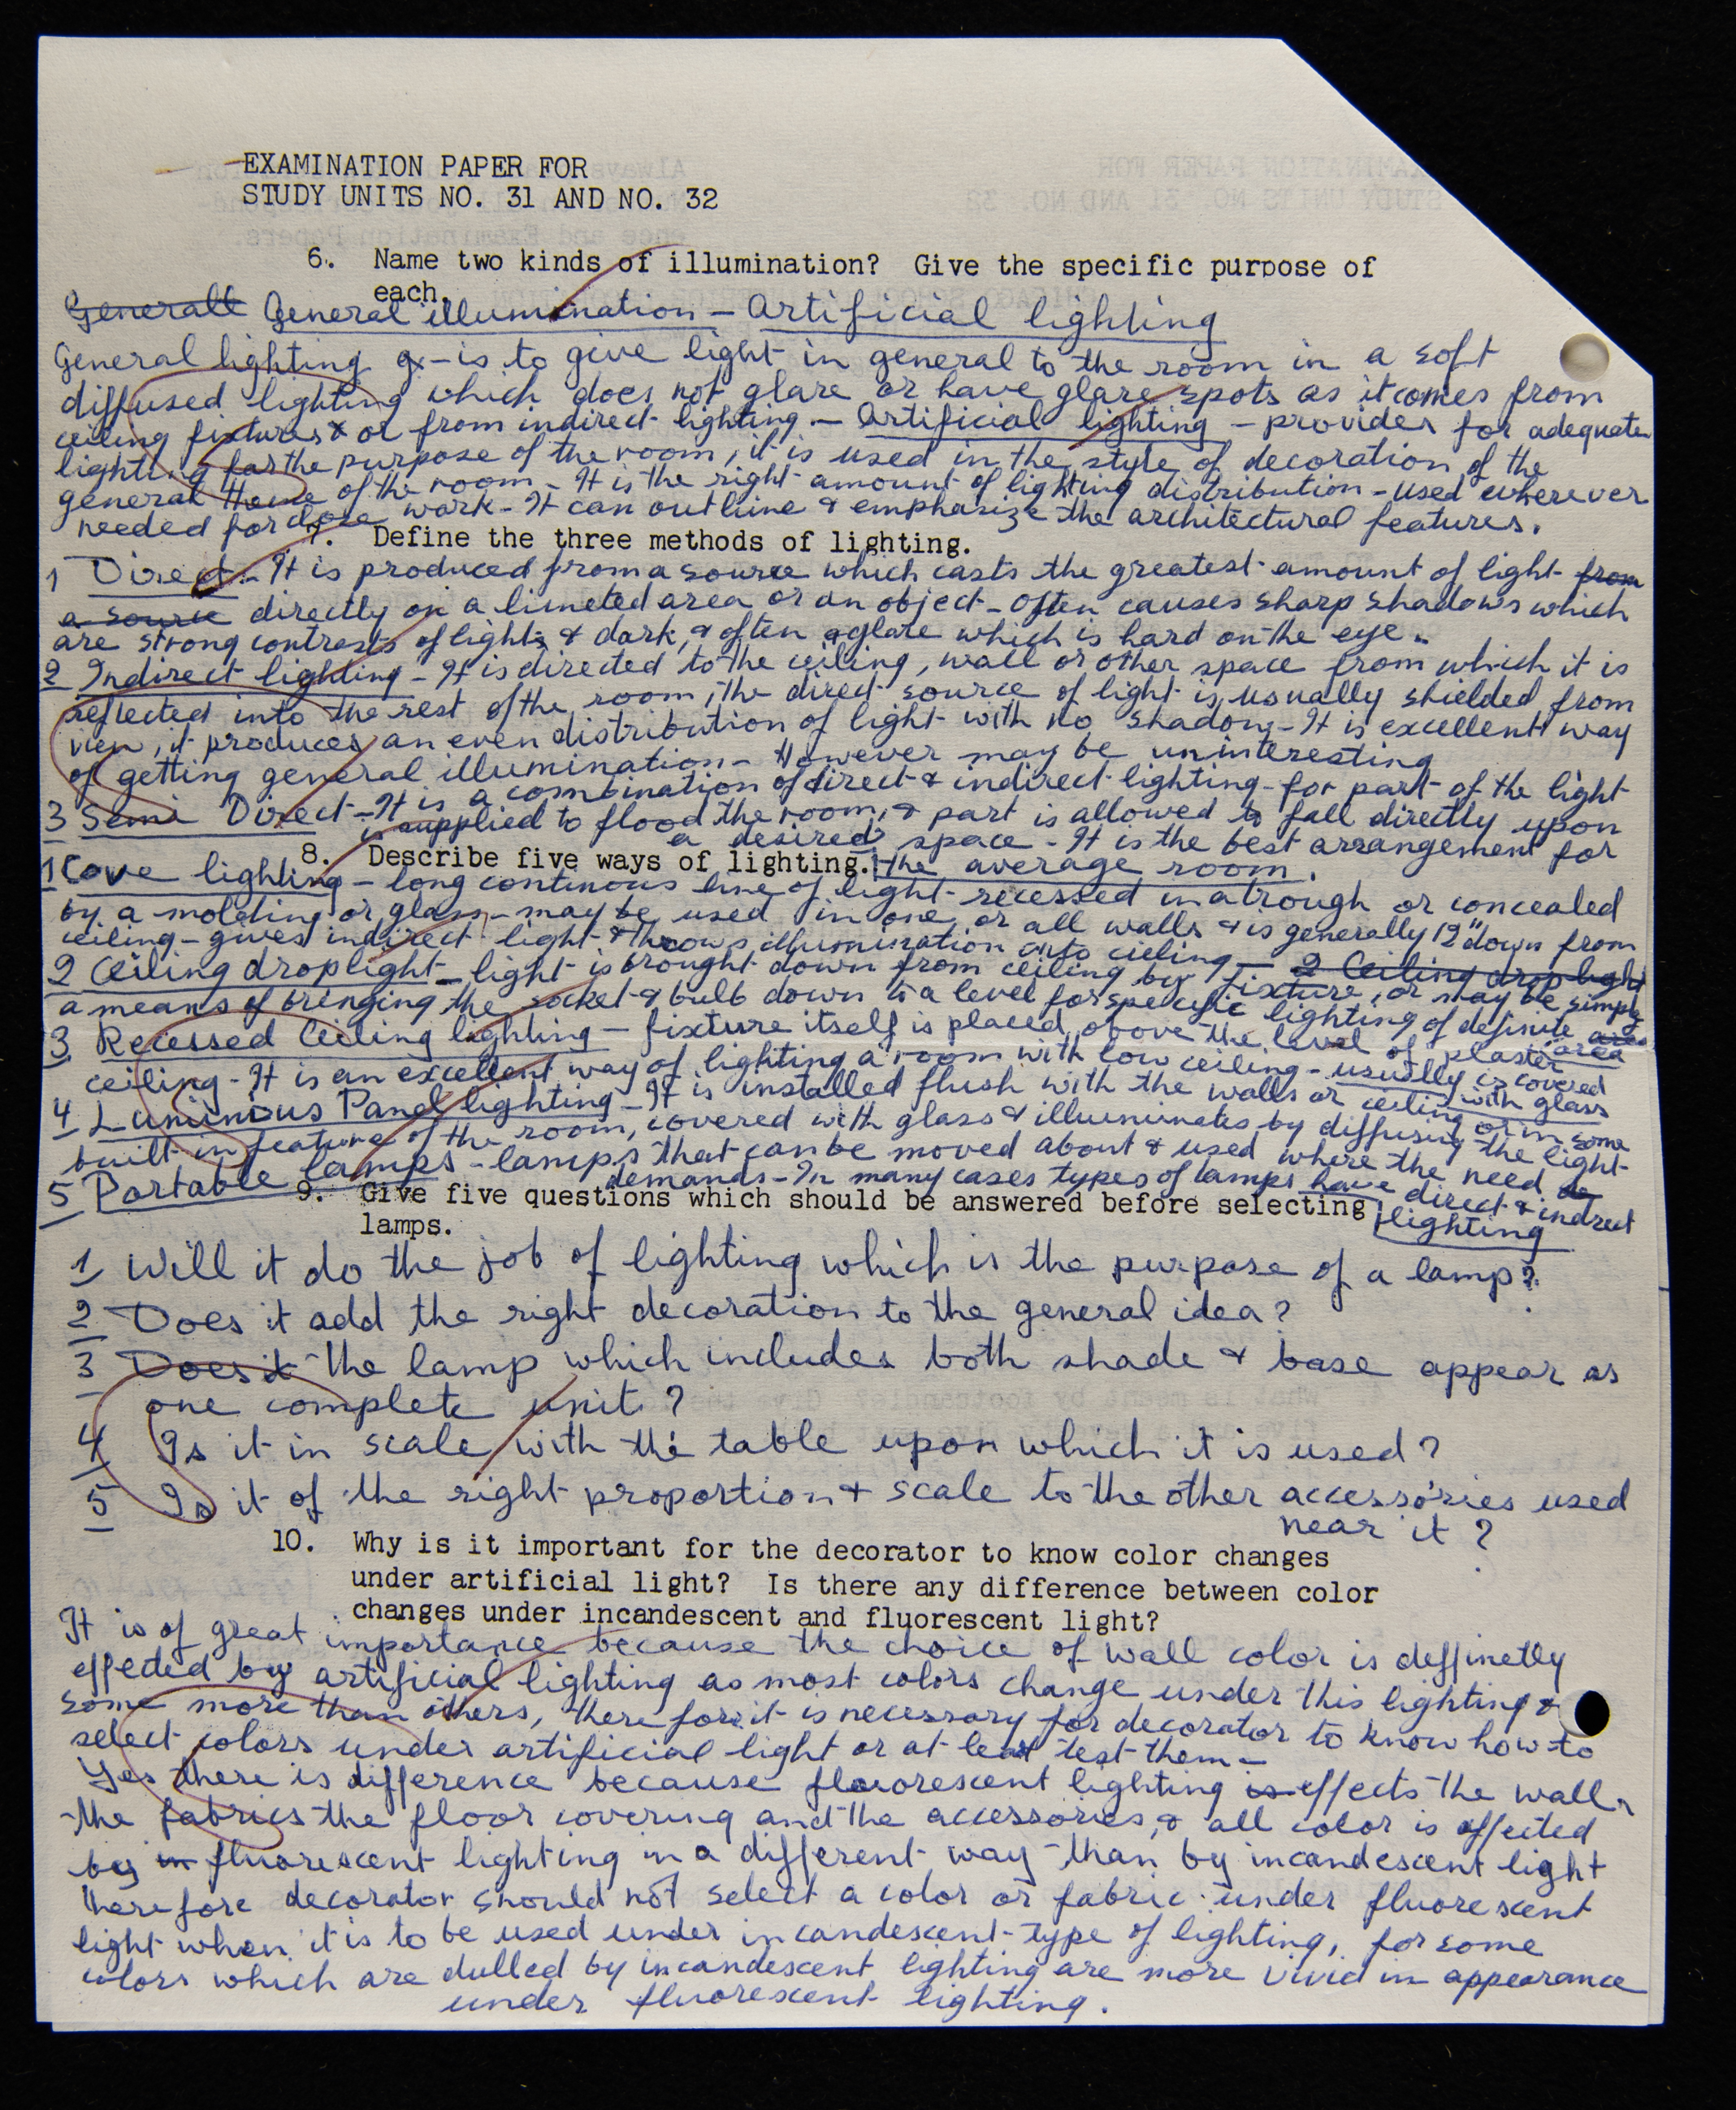 EXAMINATION PAPER FOR
STUDY UNITS NO. 31 AND NO. 32
6. Name two kinds of illumination? Give the specific purpose of
each.
Generall General illumination - Artificial lighting
General lighting - is to give light in general to the room in a soft
diffused lighting which does not glare or have glare spots as it comes from
ceiling fixtures or from indirect lighting. - Artificial lighting - provides for adequate
lighting for the purpose of the room, it is used in the style of decoration of the
general theme of the room - It is the right amount of lighting distribution - used wherever
needed for close work - It can outline & emphasize the architectural features.
7. Define the three methods of lighting.
1 Direct - It is produced from a source which casts the greatest amount of light from
a source directly on a limeted area or an object - often causes sharp shadows which
are strong contrasts of lights & dark, & often glare which is hard on the eye.
2 Indirect lighting - It is directed to the ceiling, wall or other space from which it is
reflected into the rest of the room, the direct source of light is usually shielded from
view, it produces an even distribution of light with no shadows - It is excellent way
of getting general illumination - However may be uninteresting
3 Semi Direct - It is a combination of direct & indirect lighting - for part of the light
is supplied to flood the room, & part is allowed to fall directly upon
a desired space - It is the best arrangement for
8. Describe five ways of lighting. the average room.
1 Cove lighting - long continous line of light recessed in a trough or concealed
by a molding or glass - may be used in one or all walls & is generally 12" down from
ceiling - gives indirect light & throws illumination onto cieling - 2 Ceiling drop light
2 Ceiling droplight - light is brought down from ceiling by fixture, or may be simply
a means of bringing the socket & bulb down to a level for specific lighting of definite area
3 Recessed Ceiling lighting - fixture itself is placed above the level of plaster
ceiling - It is an excellent way of lighting a room with low ceiling - usually is covered
with glass
4 Luminous Panel lighting - It is installed flush with the walls or ceiling or in some
built in feature of the room, covered with glass & illuminates by diffusing the light
5 Portable lamps - lamps that can be moved about & used where the need
demands - In many cases types of lamps have direct & indirect
lighting
9. Give five questions which should be answered before selecting
lamps.
1 Will it do the job of lighting which is the purpose of a lamp?
2 Does it add the right decoration to the general idea?
3 Does it the lamp which includes both shade & base appear as
one complete unit?
4 Is it in scale with the table upon which it is used?
5 Is it of the right proportion & scale to the other accessories used
near it?
10. Why is it important for the decorator to know color changes
under artificial light? Is there any difference between color
changes under incandescent and fluorescent light?
It is of great importance because the choice of wall color is deffinetly
effected by artificial lighting as most colors change under this lighting &
some more than others, therefore it is necessary for decorator to know how to
select colors under artificial light or at least test them -
Yes there is difference because fluorescent lighting is effects the walls
the fabrics the floor covering and the accessories, & all color is effected
by in fluorescent lighting in a different way than by incandescent light
therefore decorator should not select a color or fabric under fluorescent
light when it is to be used under incandescent type of lighting, for some
colors which are dulled by incandescent lighting are more vivid in appearance
under fluorescent lighting.